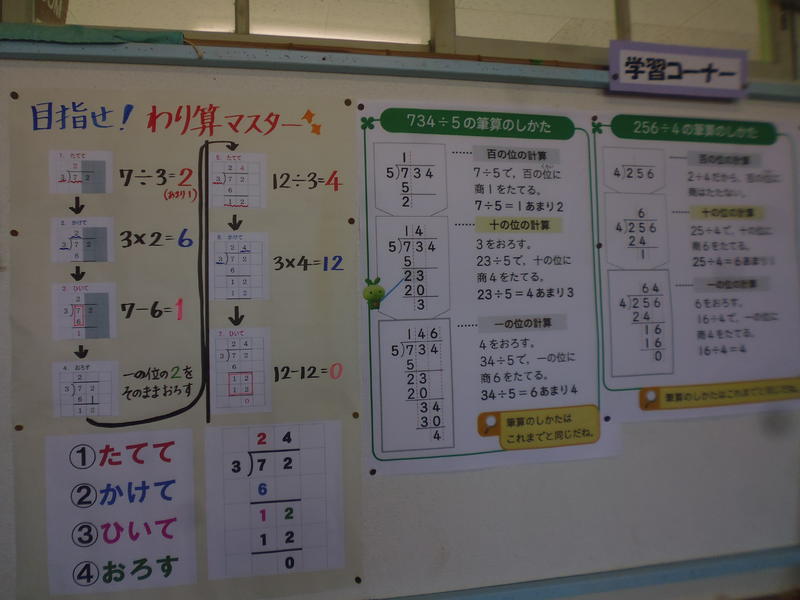 学習コーナー
目指せ! わり算マスター
1. たてて
2
3)72
7÷3=2
(あまり1)
2. かけて
2
3)72
6
3×2=6
3. ひいて
2
3)72
6
1
7-6=1
4. おろす
2
3)72
6
12
一の位の2を
そのままおろす
5. たてて
24
3)72
6
12
12÷3=4
6. かけて
24
3)72
6
12
12
3×4=12
7. ひいて
24
3)72
6
12
12
0
12-12=0
①たてて
②かけて
③ひいて
④おろす
24
3)72
6
12
12
0
734÷5の筆算のしかた
1
5)734
5
2
百の位の計算
7÷5で、百の位に
商1をたてる。
7÷5=1あまり2
14
5)734
5
23
20
3
十の位の計算
3をおろす。
23÷5で、十の位に
商4をたてる。
23÷5=4あまり3
146
5)734
5
23
20
34
30
4
一の位の計算
4をおろす。
34÷5で、一の位に
商6をたてる。
34÷5=6あまり4
筆算のしかたは
これまでと同じだね。
256÷4の筆算のしかた
4)256
百の位の計算
2÷4だから、百の位に
商はたたない。
6
4)256
24
1
十の位の計算
25÷4で、十の位に
商6をたてる。
25÷4=6あまり1
64
4)256
24
16
16
0
一の位の計算
6をおろす。
16÷4で、一の位に
商4をたてる。
16÷4=4
筆算のしかたはこれまでと同じだね。